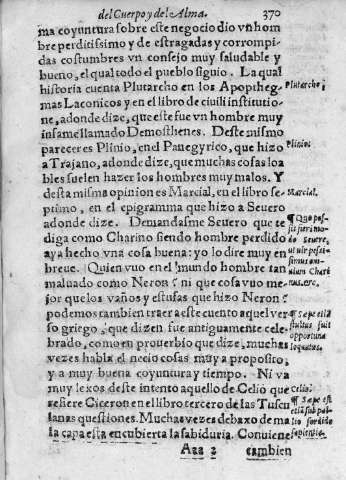 del Cuerpo y del Alma. 370
ma coyuntura sobre este negocio dio vn hom
bre perditissimo y de estragadas y corrompi
das costumbres vn consejo muy saludable y
bueno, el qual todo el pueblo siguio. La qual
historia cuenta Plutarcho en los Apoptheg
mas Laconicos y en el libro de ciuili institutio
ne, adonde dize, que este fue vn hombre muy
infame llamado Demosthenes. Deste mismo
parecer es Plinio, en el Panegyrico, que hizo
a Trajano, adonde dize, que muchas cosas loa
bles suelen hazer los hombres muy malos. Y
desta misma opinion es Marcial, en el libro se
ptimo, en el epigramma que hizo a Seuero
adonde dize. Demandasme Seuero que te
diga como Charino siendo hombre perdido
aya hecho vna cosa buena: yo lo dire muy en
breue. Quien vuo en el mundo hombre tan
maluado como Neron? ni que cosa vuo me
jor que los vaños y estufas que hizo Neron?
podemos tambien traer a este cuento aquel ver
so griego, que dizen fue antiguamente cele
brado, como en prouerbio que dize, muchas
vezes habla el necio cosas muy a proposito,
y a muy buena coyuntura y tiempo. Ni va
muy lexos deste intento aquello de Celio que
refiere Ciceron en el libro tercero de las Tuscu
lanas questiones. Muchas vezes debaxo de ma
la capa esta encubierta la sabiduria. Conuiene
Aaa 2 tambien
Plutarcho
Plinio.
Marcial.
¶ Quo pos-
sit fieri mo-
do Seuere,
ut uir pessi-
simus om-
nium Chari
nus. &c.
¶ Sæpe etiã
stultus fuit
opportuna
loquutus.
Celio.
¶ Sæpe est
etiã sub pal-
lio sordido
sapientia.